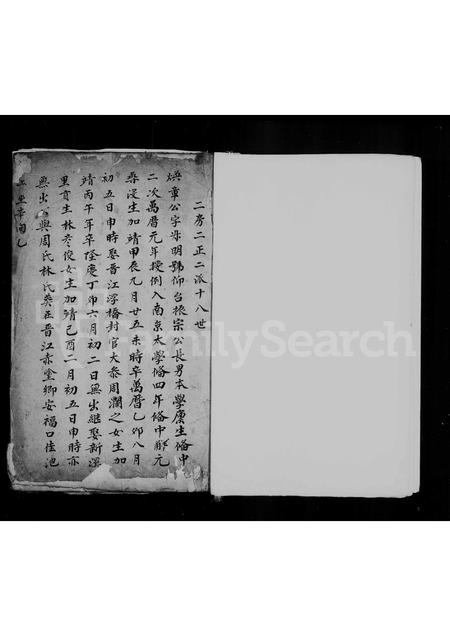 二房二正二派十八世
煥章公字 明號仰台振宗公長男本學廩生俻中
二次萬曆元年授例入南京太學俻四年俻中 元
桑浸生加靖甲辰九月廿五未時卒萬曆乙卯八月
初五日申時娶晋江浮橋封官大泰周瀾之女生加
靖丙午年卒隆慶丁卯六月初二日無出継娶新溪
里貢生林彥俊女生加靖己酉二月初五日申時亦
無出 與周氏林氏葵在晋江赤塗鄉安福口佳池
FamilySearch